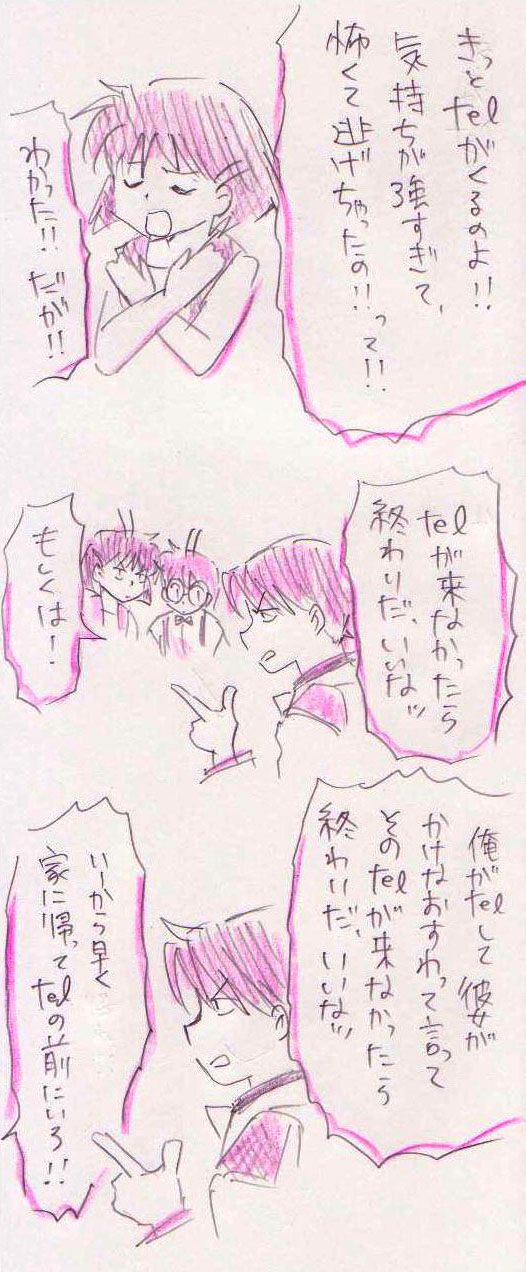 きっとtelがくるのよ!!
気持ちが強すぎて、
怖くて逃げちゃったの!!って!!
わかった!!だが!!
telが来なかったら
終わりだ、いいなッ
もしくは!
俺がtelして彼女が
かけなおすわって言って
そのtelが来なかったら
終わりだ、いいなッ
いーから早く
家に帰って
telの前にいろ!!